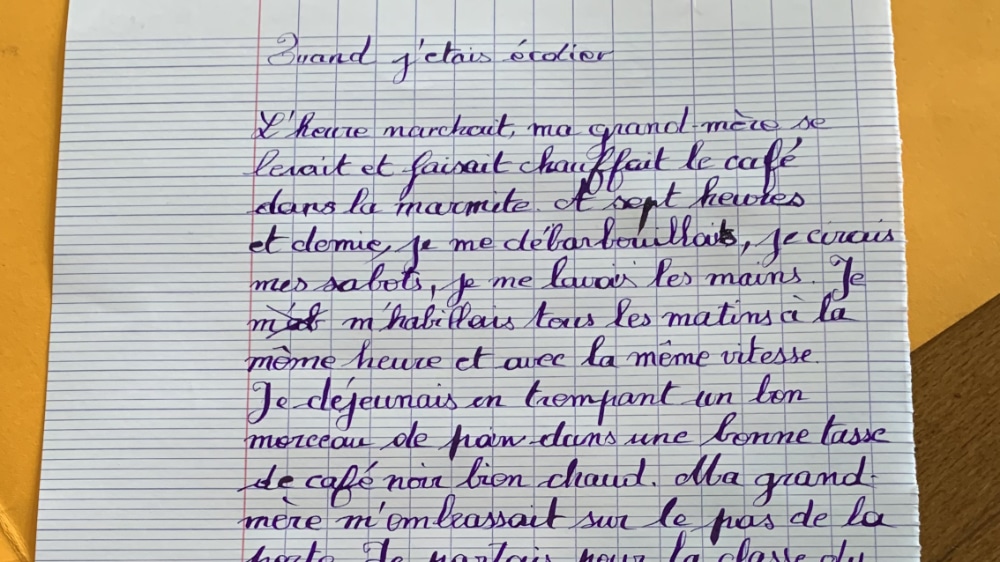 Quand j'etais écolier
L'heure marchait, ma grand-mère se
levait et faisait chauffait le café
dans la marmite. A sept heures
et demie, je me débarbouillais, je cirais
mes sabots, je me lavais les mains. Je
m'habillais tous les matins à la
même heure et avec la même vitesse.
Je déjeunais en trempant un bon
morceau de pain dans une bonne tasse
de café noir bien chaud. Ma grand-
mère m'embrassait sur le pas de la
porte. Je partais pour la classe du